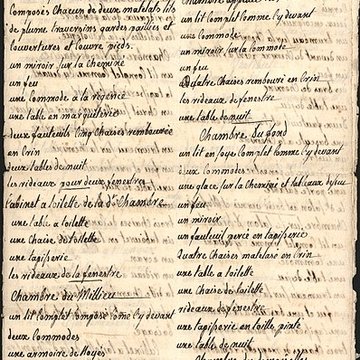 composés chacun de deux matelats lits
de plume traversins gardes pailles et
couvertures et couvre pieds.
un miroir sur la cheminé
un feu
une commode a la régence
une table en marqueterie
deux fauteuils cinq chaises rembourées
en Crin
deux tables de nuit
les rideaux pour deux fenestres
Cabinet a toilette de la de. Chambre
une table a toilette
une Chaise de toilette
une tapisserie
les rideaux de la fenestre
Chambre du Millieu
un lit complet composé come cy devant
deux Commodes
une armoire de Noyés
un lit complet comme cy devant
une commode
un miroir sur la commode
un feu
quatre Chaises rembouré en Crin
les rideaux de fenestre
une table de nuit
Chambre du fond
un lit en soye complet comme cy devant
deux Commodes
une glace sur la Cheminé et tableau
un feu
un miroir
un fauteuil percé en tapisserie
quatre Chaises matelassé en Crin
une table a toilette
une Chaise de toilette
rideaux de fenestre
une tapisserie en toille peinte
une table de nuit